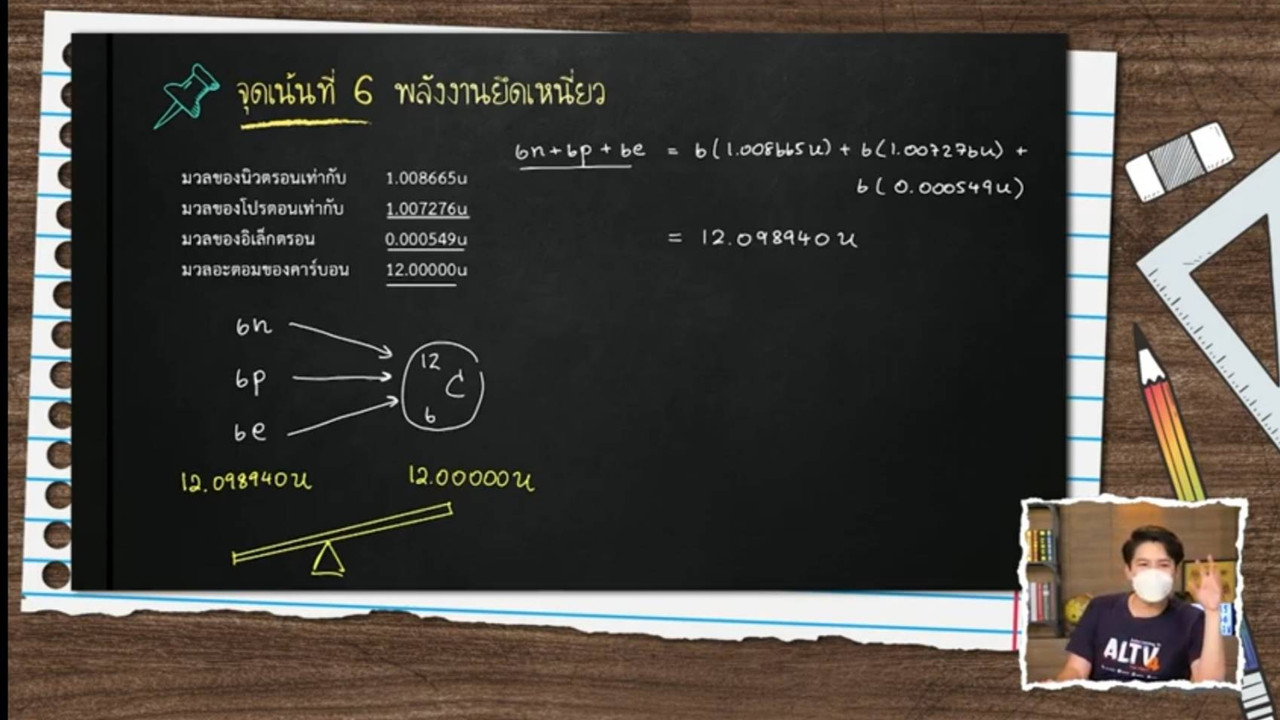 จุดเน้นที่ 6 พลังงานยึดเหนี่ยว
6n+6p+6e = 6(1.008665u) + 6(1.007276u) +
6(0.000549u)
= 12.098940u
มวลของนิวตรอนเท่ากับ 1.008665u
มวลของโปรตอนเท่ากับ 1.007276u
มวลของอิเล็กตรอน 0.000549u
มวลอะตอมของคาร์บอน 12.00000u
6n
6p
6e
12
C
6
12.098940u 12.00000u
ALTV
4